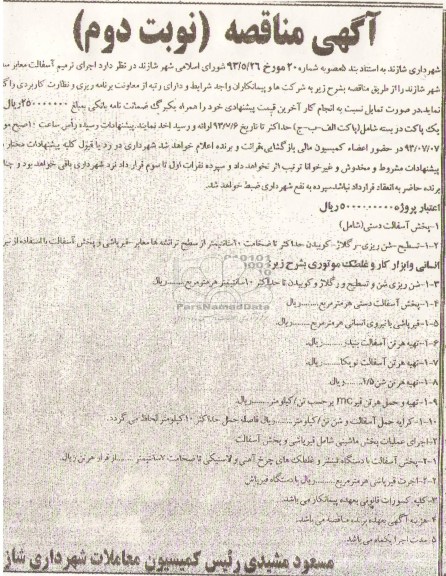 آگهی مناقصه (نوبت دوم)
شهرداری شازند به استناد بند ۵مصوبه شماره ۲۰ مورخ ۹۳/۵/۲۶ شورای اسلامی شهر شازند در نظر دارد اجرای ترمیم آسفالت معابر سطح
شهر شازند را از طریق مناقصه بشرح زیر به شرکت ها و پیمانکاران واجد شرایط و دارای رتبه از معاونت برنامه ریزی و نظارت کاربردی واگذار
نماید.در صورت تمایل نسبت به انجام کار آخرین قیمت پیشنهادی خود را همراه بکبرگ ضمانت نامه بانکی بمبلغ ۲۵۰۰۰۰۰۰ریال
یک پاکت در بسته شامل(پاکت الف-ب-ج) حداکثر تا تاریخ ۹۳/۷/۶ ارائه و رسید اخذ نمایند.پیشنهادات رسیده رأس ساعت ۱۰صبح مورخ
۹۳/۰۷/۰۷ در حضور اعضاء کمیسیون مالی بازگشایی،قرائت و برنده اعلام خواهد شد.شهرداری در رد یا قبول کلیه پیشنهادات مختار
پیشنهادات مشروط و مخدوش و غیرخوانا ترتیب اثر نخواهد داد و سپرده نفرات اول تا سوم قرار داد نزد شهرداری باقی خواهد بود و چنانچه
برنده حاضر به انعقاد قرارداد نباشد،سپرده به نفع شهرداری ضبط خواهد شد.
اعتبار پروژه ۵۰۰۰۰۰۰۰۰ ریال
۱-پخش آسفالت دستی(شامل)
۱-۲-تسطیح-شن ریزی-رگلاژ-کوبیدن حداکثر تا ضخامت ۱۰سانتیمتر از سطح ترانشه ها معابر-قیرپاشی و پخش آسفالت با استفاده از نیروی
انسانی وابزار کار و غلطک موتوری بشرح زیر
۱-۳-شن ریزی شن و تسطیح و رگلاژ و کوبیدن تا حداکثر ۱۰سانتیمتر هرمترمربع.......ریال
۱-۴-پخش آسفالت دستی هرمترمربع.......ریال
۱-۵-قیرپاشی با نیروی انسانی هرمترمربع.......ریال.
۱-۶-تهیه هرتن آسفالت بیندر.......ریال.
۱-۷-تهیه هرتن آسفالت توپکا.......ریال.
۱-۸-تهیه هرتن شن ۱/۵.......ریال.
۱-۹-تهیه و حمل هرتن قیر mc بر حسب تن/کیلومتر.......ریال
۱-۱۰-کرایه حمل آسفالت و شن تن/کیلومتر.......ریال فاصله حمل حداکثر ۱۰کیلومتر لحاظ می گردد.
۲-اجرای عملیات بخش ماشینی شامل قیرپاشی و پخش آسفالت
۲-۱-پخش آسفالت با دستگاه فینیشر و غلطک های چرخ آهنی و لاستیکی تا ضخامت ۷سانتیمتر.......از قرار هرتن ریال.
۲-۲-اجرت قیرپاشی هرمترمربع.......ریال با دستگاه قیرپاش
۳-کلیه کسورات قانونی بعهده پیمانکار می باشد.
۴-هزینه آگهی بعهده برنده مناقصه می باشد.
۵-مدت اجرا یکماه می باشد.
مسعود مشیدی رئیس کمیسیون معاملات شهرداری شازند
ParsNamadData